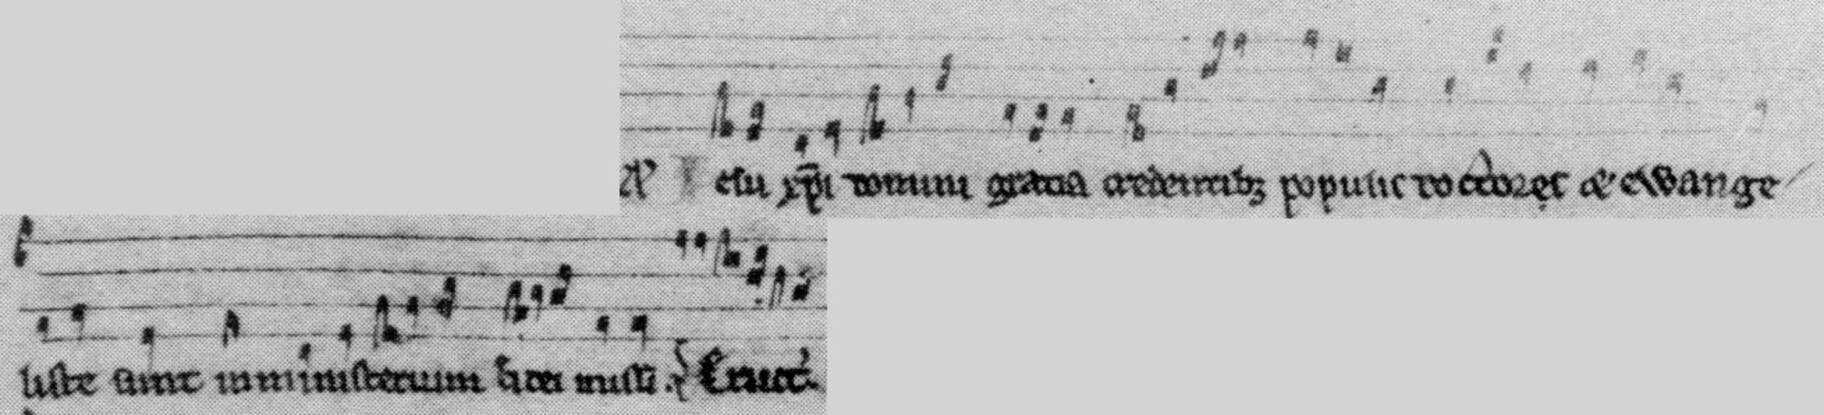 Iesu xp̄i domini gratia credentibꝫ populis doctores & ewange
liste sunt in ministerium fidei missi. Eruct̄.